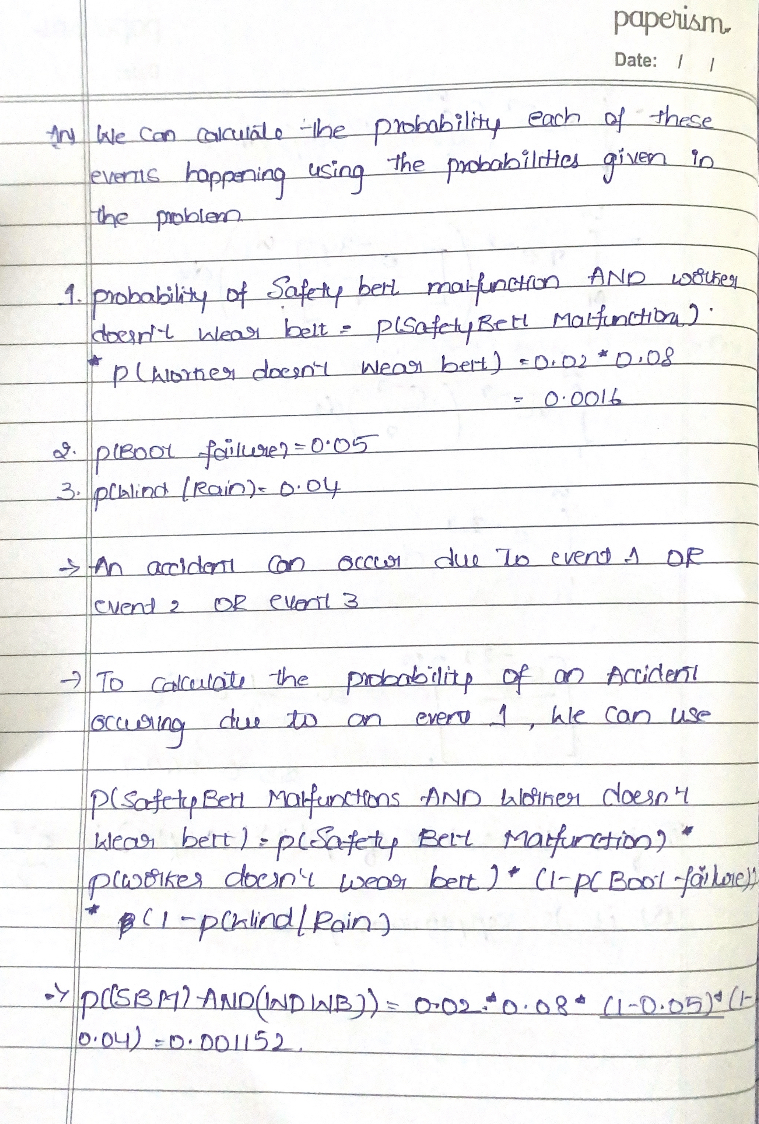 paperism
Date: / /
An) We can calculate the probability each of these
events happening using the probabilities given in
the problem
1. probability of Safety belt malfunction AND worker
doesn't wear belt = P(Safety Belt Malfunction)
* P(Worker doesn't wear belt) = 0.02 * 0.08
= 0.0016
2. P(Boot failure) = 0.05
3. P(Wind/Rain) = 0.04
→ An accident can occur due to event 1 OR
event 2 OR event 3
→ To calculate the probability of an Accident
occuring due to an event 1, we can use
P(Safety Belt Malfunctions AND Worker doesn't
wear belt) = P(Safety Belt Malfunction) *
P(worker doesn't wear belt) * (1-P(Boot failure))
* (1-P(Wind/Rain)
→ P((SBM) AND (WDWB)) = 0.02 * 0.08 * (1-0.05) * (1-
0.04) = 0.001152.